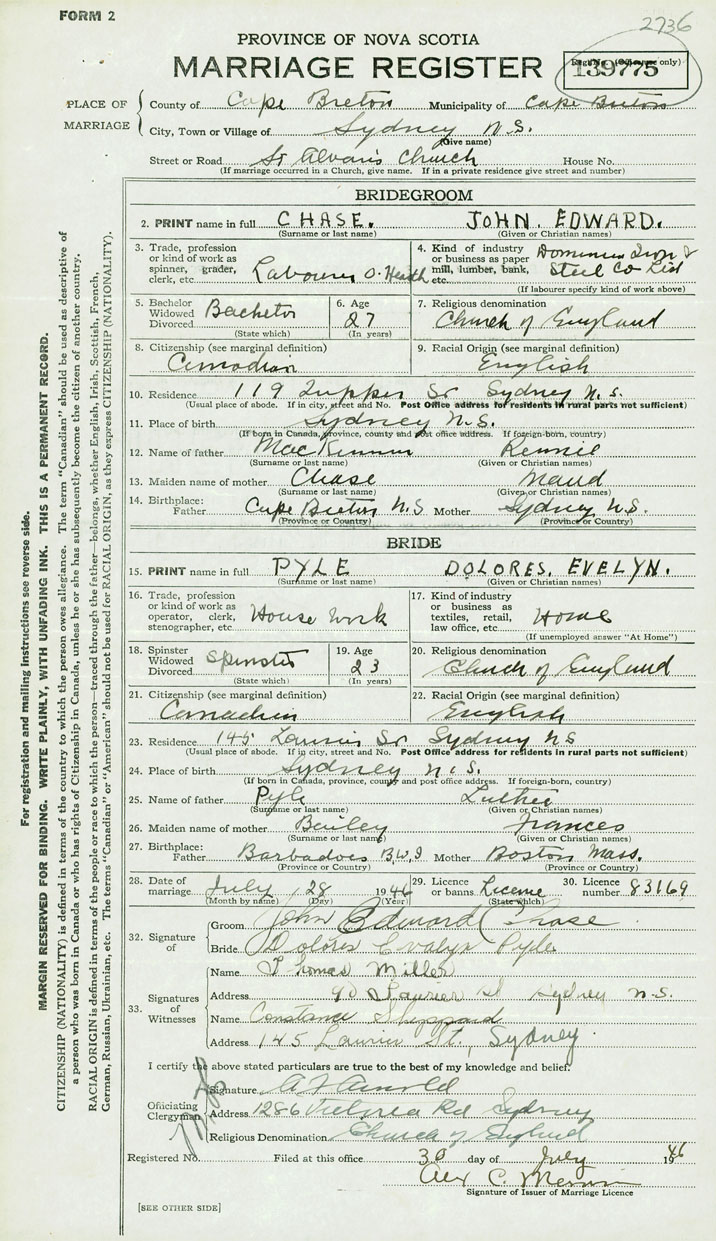 FORM 2
2736
PROVINCE OF NOVA SCOTIA
MARRIAGE REGISTER
139775
PLACE OF MARRIAGE
County of Cape Breton Municipality of Cape Breton
City, Town or Village of Sydney N.S.
(Give name)
Street or Road St Alvans Church House No.
(If marriage occurred in a Church, give name. If in a private residence give street and number)
BRIDEGROOM
2. PRINT name in full CHASE. JOHN. EDWARD.
(Surname or last name) (Given or Christian names)
3. Trade, profession or kind of work as spinner, grader, clerk, etc. Labourer O. Hearth
4. Kind of industry or business as paper mill, lumber, bank, etc. Dominion Iron & Steel Co Ltd
(If labourer specify kind of work above)
5. Bachelor Widowed Divorced Bachelor
(State which)
6. Age 27
(In years)
7. Religious denomination
Church of England
8. Citizenship (see marginal definition)
Canadian
9. Racial Origin (see marginal definition)
English
10. Residence 119 Tupper St Sydney N.S.
(Usual place of abode. If in city, street and No. Post Office address for residents in rural parts not sufficient)
11. Place of birth Sydney N.S.
(If born in Canada, province, county and post office address. If foreign-born, country)
12. Name of father MacKinnon
(Surname or last name) (Given or Christian names)
13. Maiden name of mother Chase Maud
(Surname or last name) (Given or Christian names)
14. Birthplace: Father Cape Breton N.S Mother Sydney N.S.
(Province or Country) (Province or Country)
BRIDE
15. PRINT name in full PYLE DOLORES. EVELYN.
(Surname or last name) (Given or Christian names)
16. Trade, profession or kind of work as operator, clerk, stenographer, etc. House Work
17. Kind of industry or business as textiles, retail, law office, etc. Home
(If unemployed answer "At Home")
18. Spinster Widowed Divorced Spinster
(State which)
19. Age 23
(In years)
20. Religious denomination
Church of England
21. Citizenship (see marginal definition)
Canadian
22. Racial Origin (see marginal definition)
English
23. Residence 145 Laurier St Sydney NS
(Usual place of abode. If in city, street and No. Post Office address for residents in rural parts not sufficient)
24. Place of birth Sydney N.S.
(If born in Canada, province, county and post office address. If foreign-born, country)
25. Name of father Pyle Luther
(Surname or last name) (Given or Christian names)
26. Maiden name of mother Bailey Frances
(Surname or last name) (Given or Christian names)
27. Birthplace: Father Barbados B.W.I Mother Boston Mass.
(Province or Country) (Province or Country)
28. Date of marriage July 28 1946
(Month by name) (Day) (Year)
29. Licence or banns License
(State which)
30. Licence number 83169
32. Signature of
Groom John Edward Chase
Bride Dolores Evalyn Pyle
33. Signatures of Witnesses
Name Thomas Miller
Address 90 Laurier St Sydney N.S.
Name Constance Sheppard
Address 145 Laurier St., Sydney.
I certify the above stated particulars are true to the best of my knowledge and belief.
Officiating Clergyman
Signature A F Arnold
Address 1286 Victoria Rd Sydney
Religious Denomination Church of England
Registered No. Filed at this office 30 day of July 1946
Signature of Issuer of Marriage Licence
[SEE OTHER SIDE]
For registration and mailing instructions see reverse side.
MARGIN RESERVED FOR BINDING. WRITE PLAINLY, WITH UNFADING INK. THIS IS A PERMANENT RECORD.
CITIZENSHIP (NATIONALITY) is defined in terms of the country to which the person owes allegiance. The term "Canadian" should be used as descriptive of
a person who was born in Canada or who has rights of Citizenship in Canada, unless he or she has subsequently become the citizen of another country.
RACIAL ORIGIN is defined in terms of the people or race to which the person—traced through the father—belongs, whether English, Irish, Scottish, French,
German, Russian, Ukrainian, etc. The terms "Canadian" or "American" should not be used for RACIAL ORIGIN, as they express CITIZENSHIP (NATIONALITY).